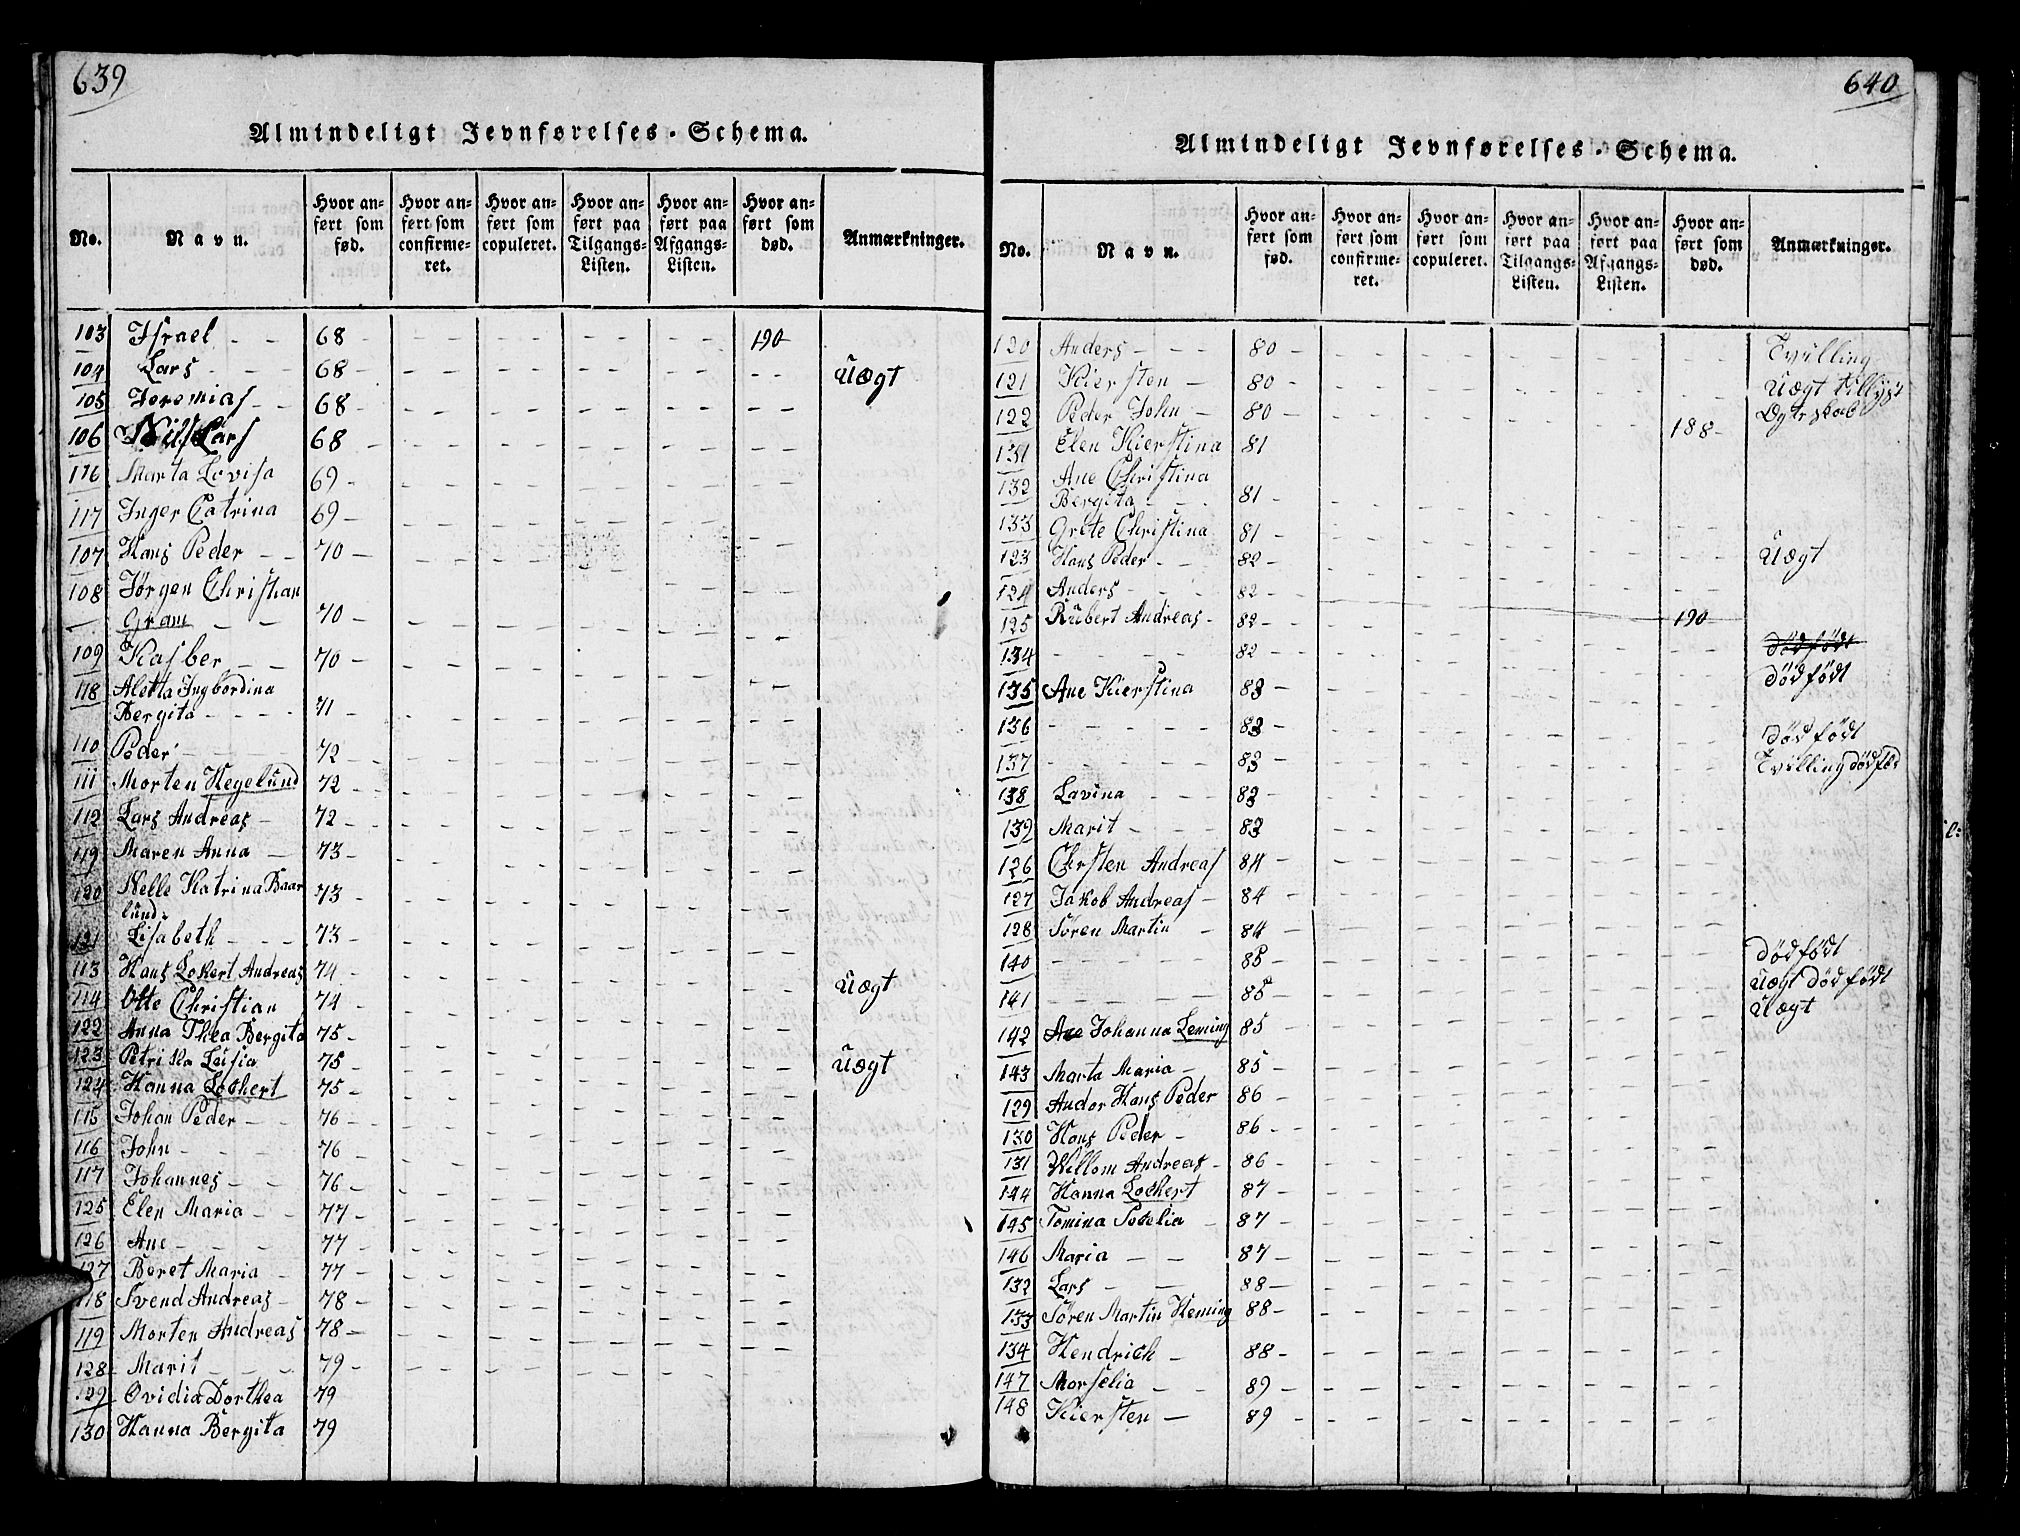 639
Almindeligt Jevnførelses-Schema.
No. Navn. Hvor anført som fød. Hvor anført som confirmeret. Hvor anført som copuleret. Hvor anført paa Tilgangs-Listen. Hvor anført paa Afgangs-Listen. Hvor anført som død. Anmærkninger.
103 Israel 68 190
104 Lars 68 Uægt
105 Jeremias 68
106 Nils Lars 68
116 Marta Lovisa 69
117 Inger Catrina 69
107 Hans Peder 70
108 Jørgen Christian
Gram 70
109 Kasber 70
118 Aletta Ingbordina
Bergita 71
110 Peder 72
111 Morten Hegelund 72
112 Lars Andreas 72
119 Maren Anna 73
120 Nelle Katrina Baar
lund 73
121 Lisabeth 73
113 Hans Lokert Andreas 74 Uægt
114 Otte Christian 74
122 Anna Thea Bergita 75
123 Petrika Lusia 75 Uægt
124 Hanna Lockert 75
115 Johan Peder 76
116 John 76
117 Johannes 76
125 Elen Maria 77
126 Ane 77
127 Beret Maria 77
118 Svend Andreas 78
119 Morten Andreas 78
128 Marit 79
129 Ovidia Dorthea 79
130 Hanna Bergita 79
640
Almindeligt Jevnførelses-Schema.
No. Navn. Hvor anført som fød. Hvor anført som confirmeret. Hvor anført som copuleret. Hvor anført paa Tilgangs-Listen. Hvor anført paa Afgangs-Listen. Hvor anført som død. Anmærkninger.
120 Anders 80 Tvilling
121 Kiersten 80 Uægt tillyst
122 Peder John 80 188 Ægteskab
131 Elen Kierstina 81
132 Ane Christina
Bergita 81
133 Grete Christina 81
123 Hans Peder 82 Uægt
124 Anders 82
125 Rubert Andreas 82 190
134 82 Dödfödt
Dödfödt
135 Ane Kierstina 83
136 83 Dödfödt
137 83 Tvilling dödföd
138 Lavina 83
139 Marit 83
126 Chrsten Andreas 84
127 Jakob Andreas 84
128 Sören Martin 84
140 85 Dödfödt
141 85 Uægt Dödfödt
142 Ane Johanna Leming 85 Uægt
143 Marta Maria 85
129 Andor Hans Peder 86
130 Hans Peder 86
131 Willom Andreas 86
144 Hanna Lockert 87
145 Tomina Petelia 87
146 Maria 87
132 Lars 88
133 Sören Martin Heming 88
134 Hendrich 88
147 Morselia 89
148 Kiersten 89